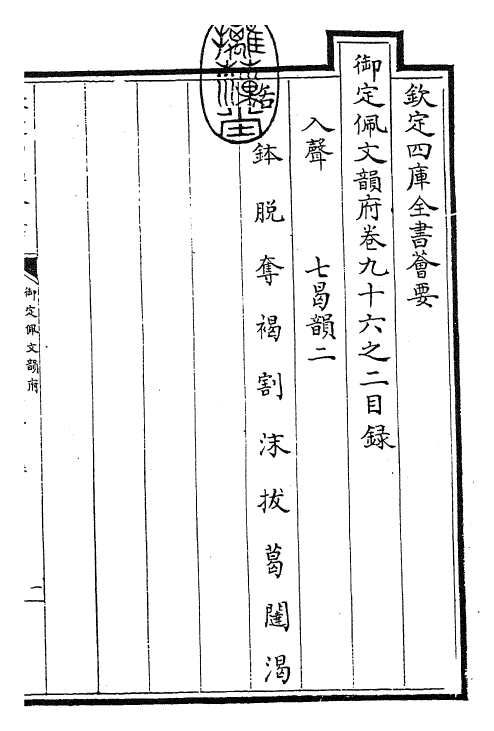 欽定四庫全書薈要
御定佩文韻府卷九十六之二目録
入聲 七曷韻二
鉢 脱 奪 褐 割 沫 拔 葛 闥 渴
御定佩文韻府
一